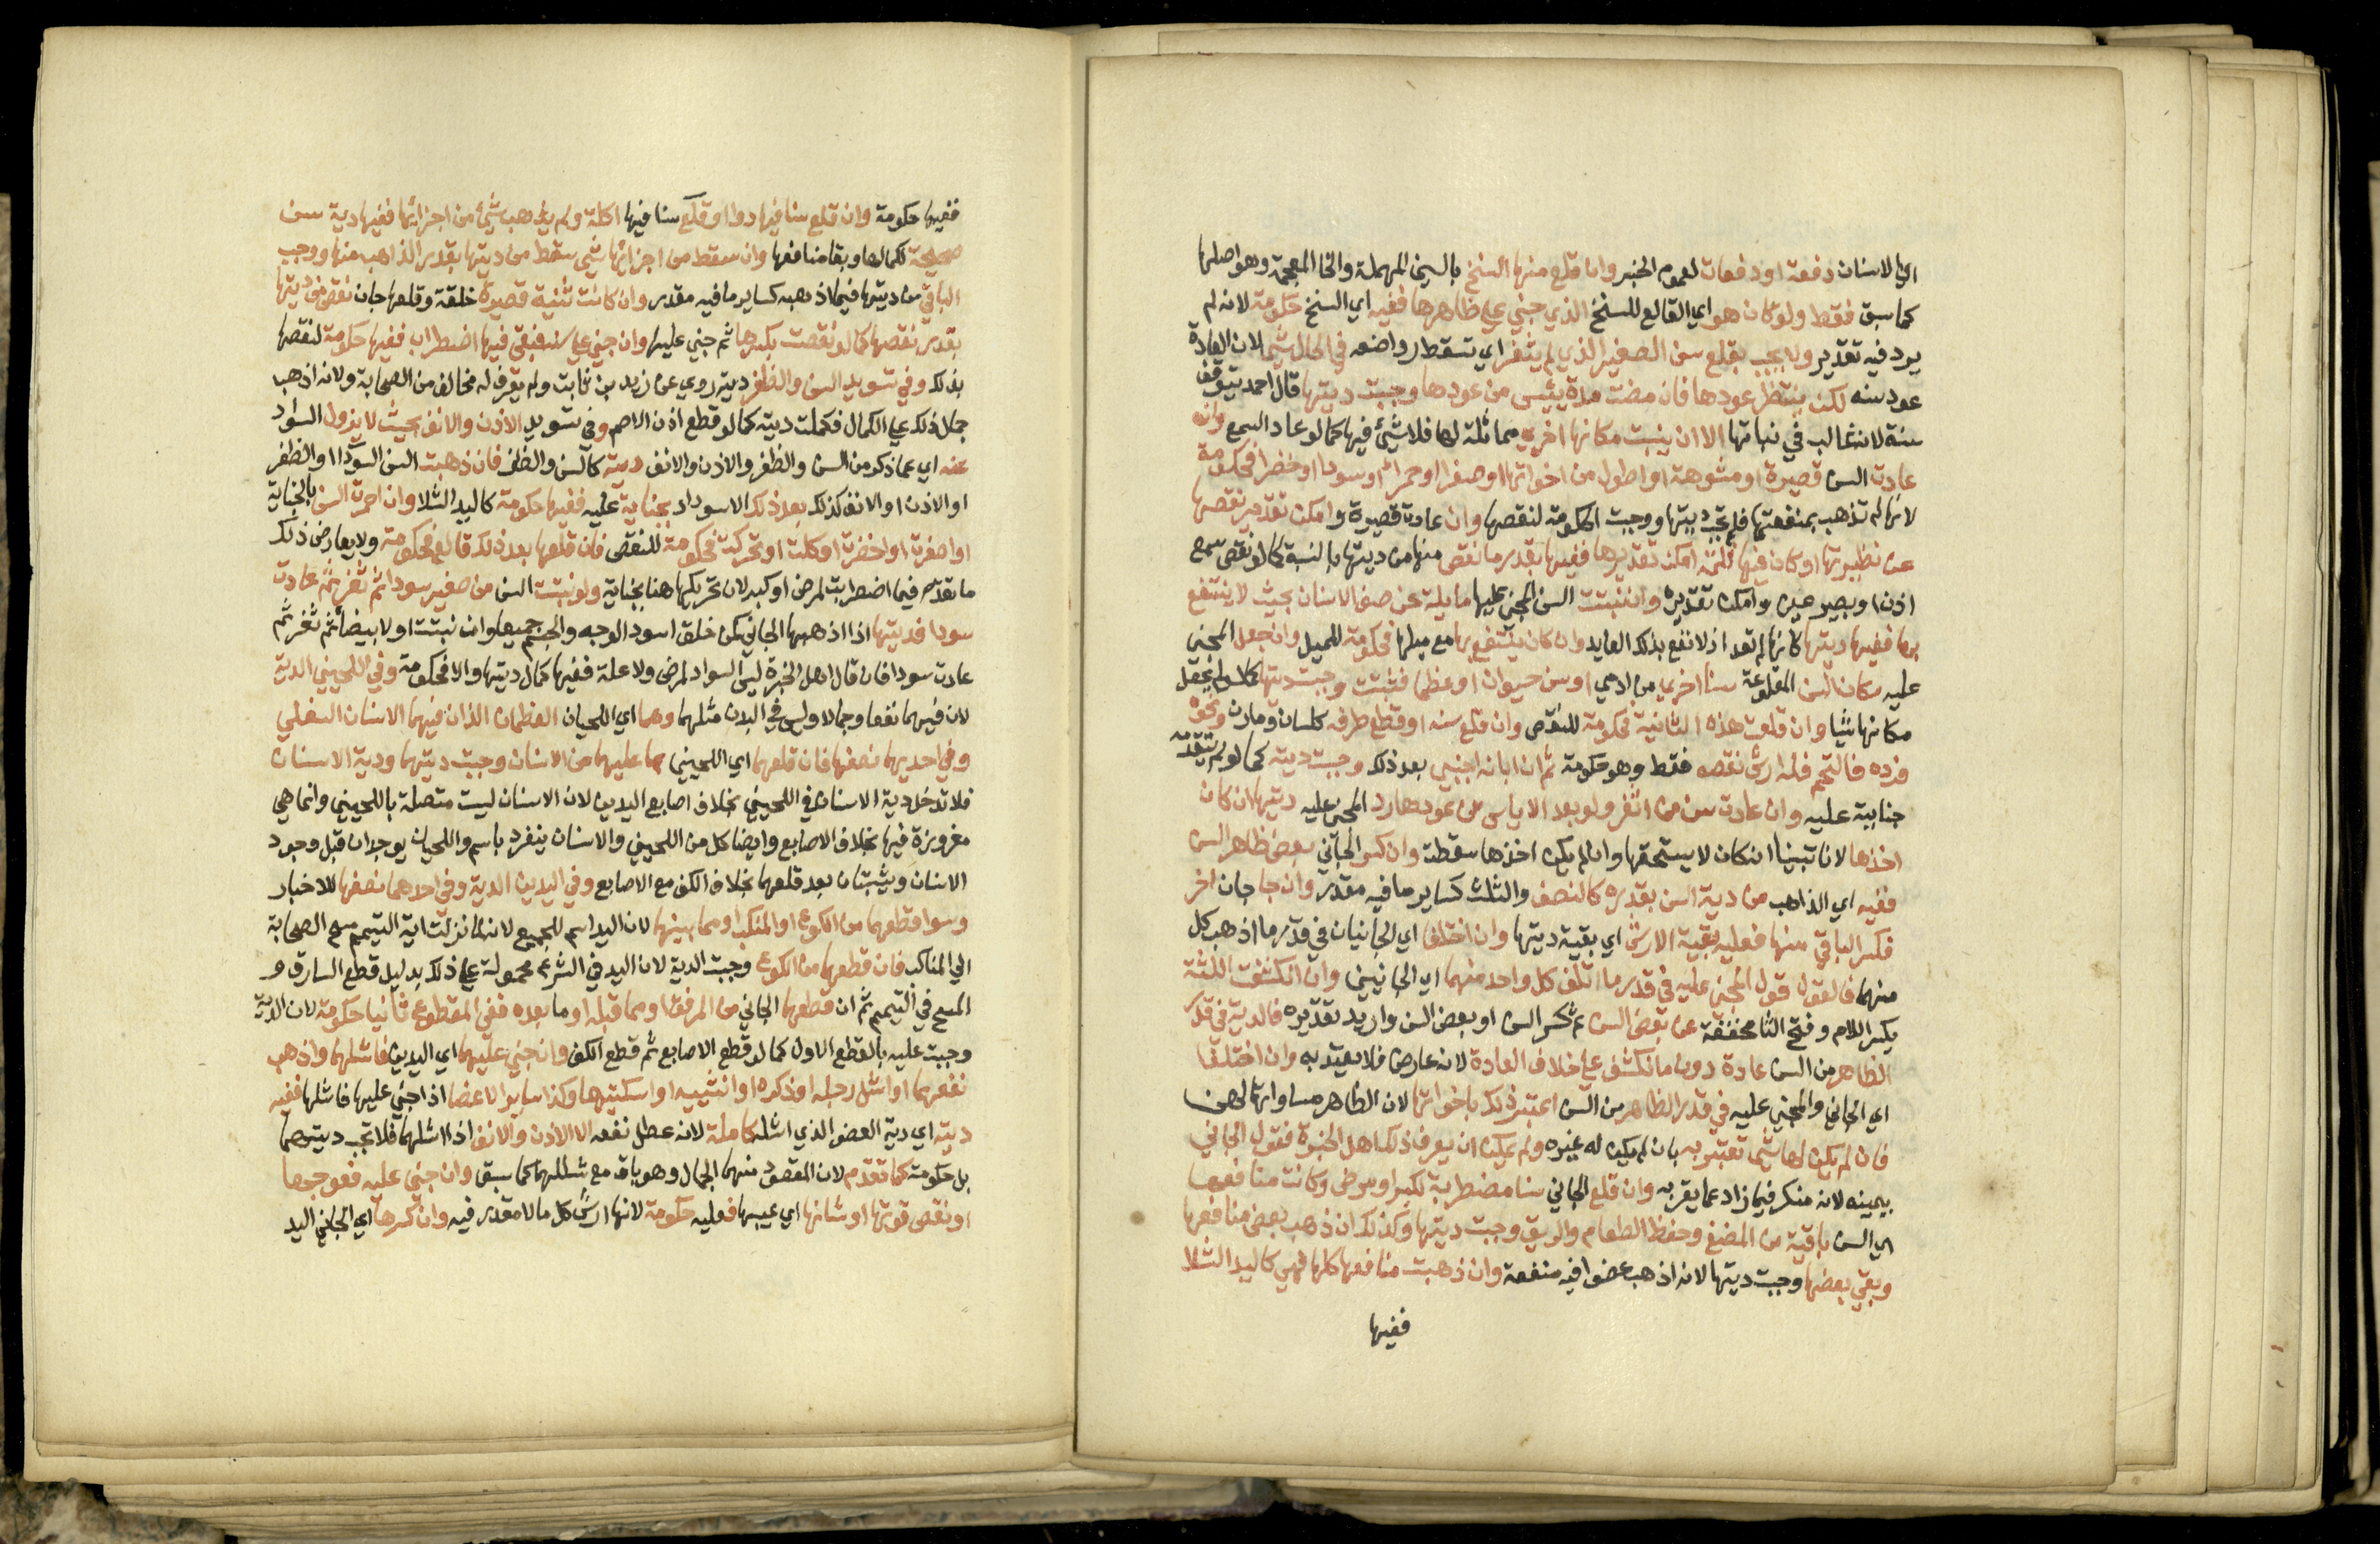 اي الاسنان دفعة او دفعات لعموم الخبر وان قلع منها السنخ بالسين المهملة والخا المعجمة وهو اصلها
كما سبق فقط ولو كان هو اي القالع للسنخ الذي جني علي ظاهرها ففيه اي السنخ حكومة لانه لم
يرد فيه تقدير ولا يجب بقلع سن الصغير الذي لم يثغر اي تسقط رواضعه في الحال شي لان العادة
عود سنه لكن ينتظر عودها فان مضت مدة يئس من عودها وجبت ديتها قال احمد يتوقف
سنة لانه غالب في نباتها الا ان ينبت مكانها اخري مماثلة لها فلا شي فيها كما لو عاد السمع وان
عادت السن قصيرة او مشوهة او اطول من اخواتها او صفرا او حمرا او سودا او خضرا فحكومة
لانها لم تذهب بمنفعتها فلم تجب ديتها ووجبت الحكومة لنقصها وان عادت قصيرة وامكن تقدير نقصها
عن نظيرتها او كان فيها ثلمة امكن تقديرها ففيها بقدر ما نقص منها من ديتها بالنسبة كما لو نقص سمع
اذن او بصر عين وامكن تقديره وان نبتت السن المجني عليها مايلة عن صف الاسنان بحيث لا ينتفع
بها ففيها ديتها كانها لم تعد اذ لا نفع بذلك العايد وان كان ينتفع بها مع ميلها فحكومة للميل وان جعل المجني
عليه مكان السن المقلوعة سنا اخري من ادمي او سن حيوان او عظما فثبتت وجبت ديتها كما لو لم يجعل
مكانها شيا وان قلعت هذه الثانية فحكومة للنقص وان قلع سنه او قطع طرفه كلسان ومارن ونحوه
فرده فالتحم فله ارش نقصه فقط وهو حكومة ثم ان ابانه اجنبي بعد ذلك وجبت ديته كما لو لم يتقدمه
جناية عليه وان عادت سن من اثغر ولو بعد الاياس من عودها رد المجني عليه ديتها ان كان
اخذها لانا تبينا ان كان لا يستحقها وان لم يكن اخذها سقطت وان كسر الجاني بعض ظاهر السن
ففيه اي الذاهب من دية السن بقدره كالنصف والثلث كساير ما فيه مقدر وان جا جان اخر
فكسر الباقي منها فعليه بقية الارش اي بقية ديتها وان اختلفا اي الجانيان في قدر ما اذهب كل
منهما فالقول قول المجني عليه في قدر ما اتلف كل واحد منهما اي الجانيين وان انكشفت اللثة
بكسر اللام وفتح الثا مخففة عن بعض السن ثم كسر السن او بعض السن واريد تقديره فالدية في قدر
الظاهر من السن عادة دون ما انكشف علي خلاف العادة لانه عارض فلا يعتد به وان اختلفا
اي الجاني والمجني عليه في قدر الظاهر من السن اعتبر ذلك باخواتها لان الظاهر مساواتها لهن
فان لم يكن لها شي تعتبر به بان لم يكن له غيره ولم يمكن ان يعرف ذلك اهل الخبرة فقول الجاني
بيمينه لانه منكر فيما زاد عما يقر به وان قلع الجاني سنا مضطربة لكبر او مرض وكانت منافعها
اي السن باقية من المضغ وحفظ الطعام والريق وجبت ديتها وكذلك ان ذهب بعض منافعها
وبقي بعضها وجبت ديتها لانه اذهب عضوا فيه منفعة وان ذهبت منافعها كلها فهي كاليد الشلا
ففيها
ففيها حكومة وان قلع سنا فيها دوا او قلع سنا فيها اكلة ولم يذهب شي من اجزائها ففيها دية سن
صحيحة لكمالها وبقا منافعها وان سقط من اجزائها شي سقط من ديتها بقدر الذاهب منها ووجب
الباقي من ديتها فيما اذهبه كساير ما فيه مقدر وان كانت ثنية قصيرة خلقة وقلعها جان نقص من ديتها
بقدر نقصها كما لو نقصت بكسرها ثم جني عليها وان جني علي سنه فبقي فيها اضطراب ففيها حكومة لنقصها
بذلك وفي تسويد السن والظفر ديته روي عن زيد بن ثابت ولم يعرف له مخالف من الصحابة ولانه اذهب
جمال ذلك علي الكمال فكملت ديته كما لو قطع اذن الاصم وفي تسويد الاذن والانف بحيث لا يزول السواد
عنه اي عما ذكر من السن والظفر والاذن والانف ديته كالسن والظفر فان ذهبت السن السودا او الظفر
او الاذن او الانف كذلك بعد ذلك الاسوداد بجناية عليه ففيها حكومة كاليد الشلا وان احمرت السن بالجناية
او اصفرت او اخضرت او كلت او تحركت فحكومة للنقص فان قلعها بعد ذلك قالع فحكومة ولا يعارض ذلك
ما تقدم فيما اضطربت لمرض او كبر لان تحريكها هنا بجناية ولو نبتت السن من صغير سودا ثم ثغر ثم عادت
سودا فديتها اذا اذهبها الجاني كمن خلق اسود الوجه والجسم جميعا وان نبتت اولا بيضا ثم ثغر ثم
عادت سودا فان قال اهل الخبرة ليس السواد لمرض ولا علة ففيها كمال ديتها والا فحكومة وفي اللحيين الدية
لان فيهما نفعا وجمالا وليس في البدن مثلهما وهما اي اللحيان العظمان اللذان فيهما الاسنان السفلي
وفي احديهما نصفها فان قلعهما اي اللحيين بما عليهما من الاسنان وجبت ديتهما ودية الاسنان
فلا تدخل دية الاسنان في اللحيين بخلاف اصابع اليدين لان الاسنان ليست متصلة باللحيين وانما هي
مغروزة فيها بخلاف الاصابع وايضا كل من اللحيين والاسنان ينفرد باسم واللحيان يوجدان قبل وجود
الاسنان ويثبتان بعد قلعهما بخلاف الكف مع الاصابع وفي اليدين الدية وفي احدهما نصفها للاخبار
وسوا قطعهما من الكوع او المنكب او مما بينهما لان اليد اسم للجميع لانه لما نزلت اية التيمم مسح الصحابة
الي المناكب فان قطعهما من الكوع وجبت الدية لان اليد في الشرع محمولة علي ذلك بدليل قطع السارق و
المسح في التيمم ثم ان قطعهما الجاني من المرفق او مما قبله او ما بعده ففي المقطوع ثانيا حكومة لان الدية
وجبت عليه بالقطع الاول كما لو قطع الاصابع ثم قطع الكف وان جني عليهما اي اليدين فاشلهما واذهب
نفعهما او اشل رجله او ذكره او انثييه او اسكتيها وكذا ساير الاعضا اذا جني عليها فاشلها ففيه
ديته اي دية العضو الذي اشله كاملة لانه عطل نفعه الا الاذن والانف اذا اشلهما فلا تجب ديتهما
بل حكومة كما تقدم لان المقصود منهما الجمال وهو باق مع شللهما كما سبق وان جني عليه فعوججها
او نقص قوتها او شانها اي عيبها فعليه حكومة لانها ارش كل ما لا مقدر فيه وان كسرها اي الجاني اليد